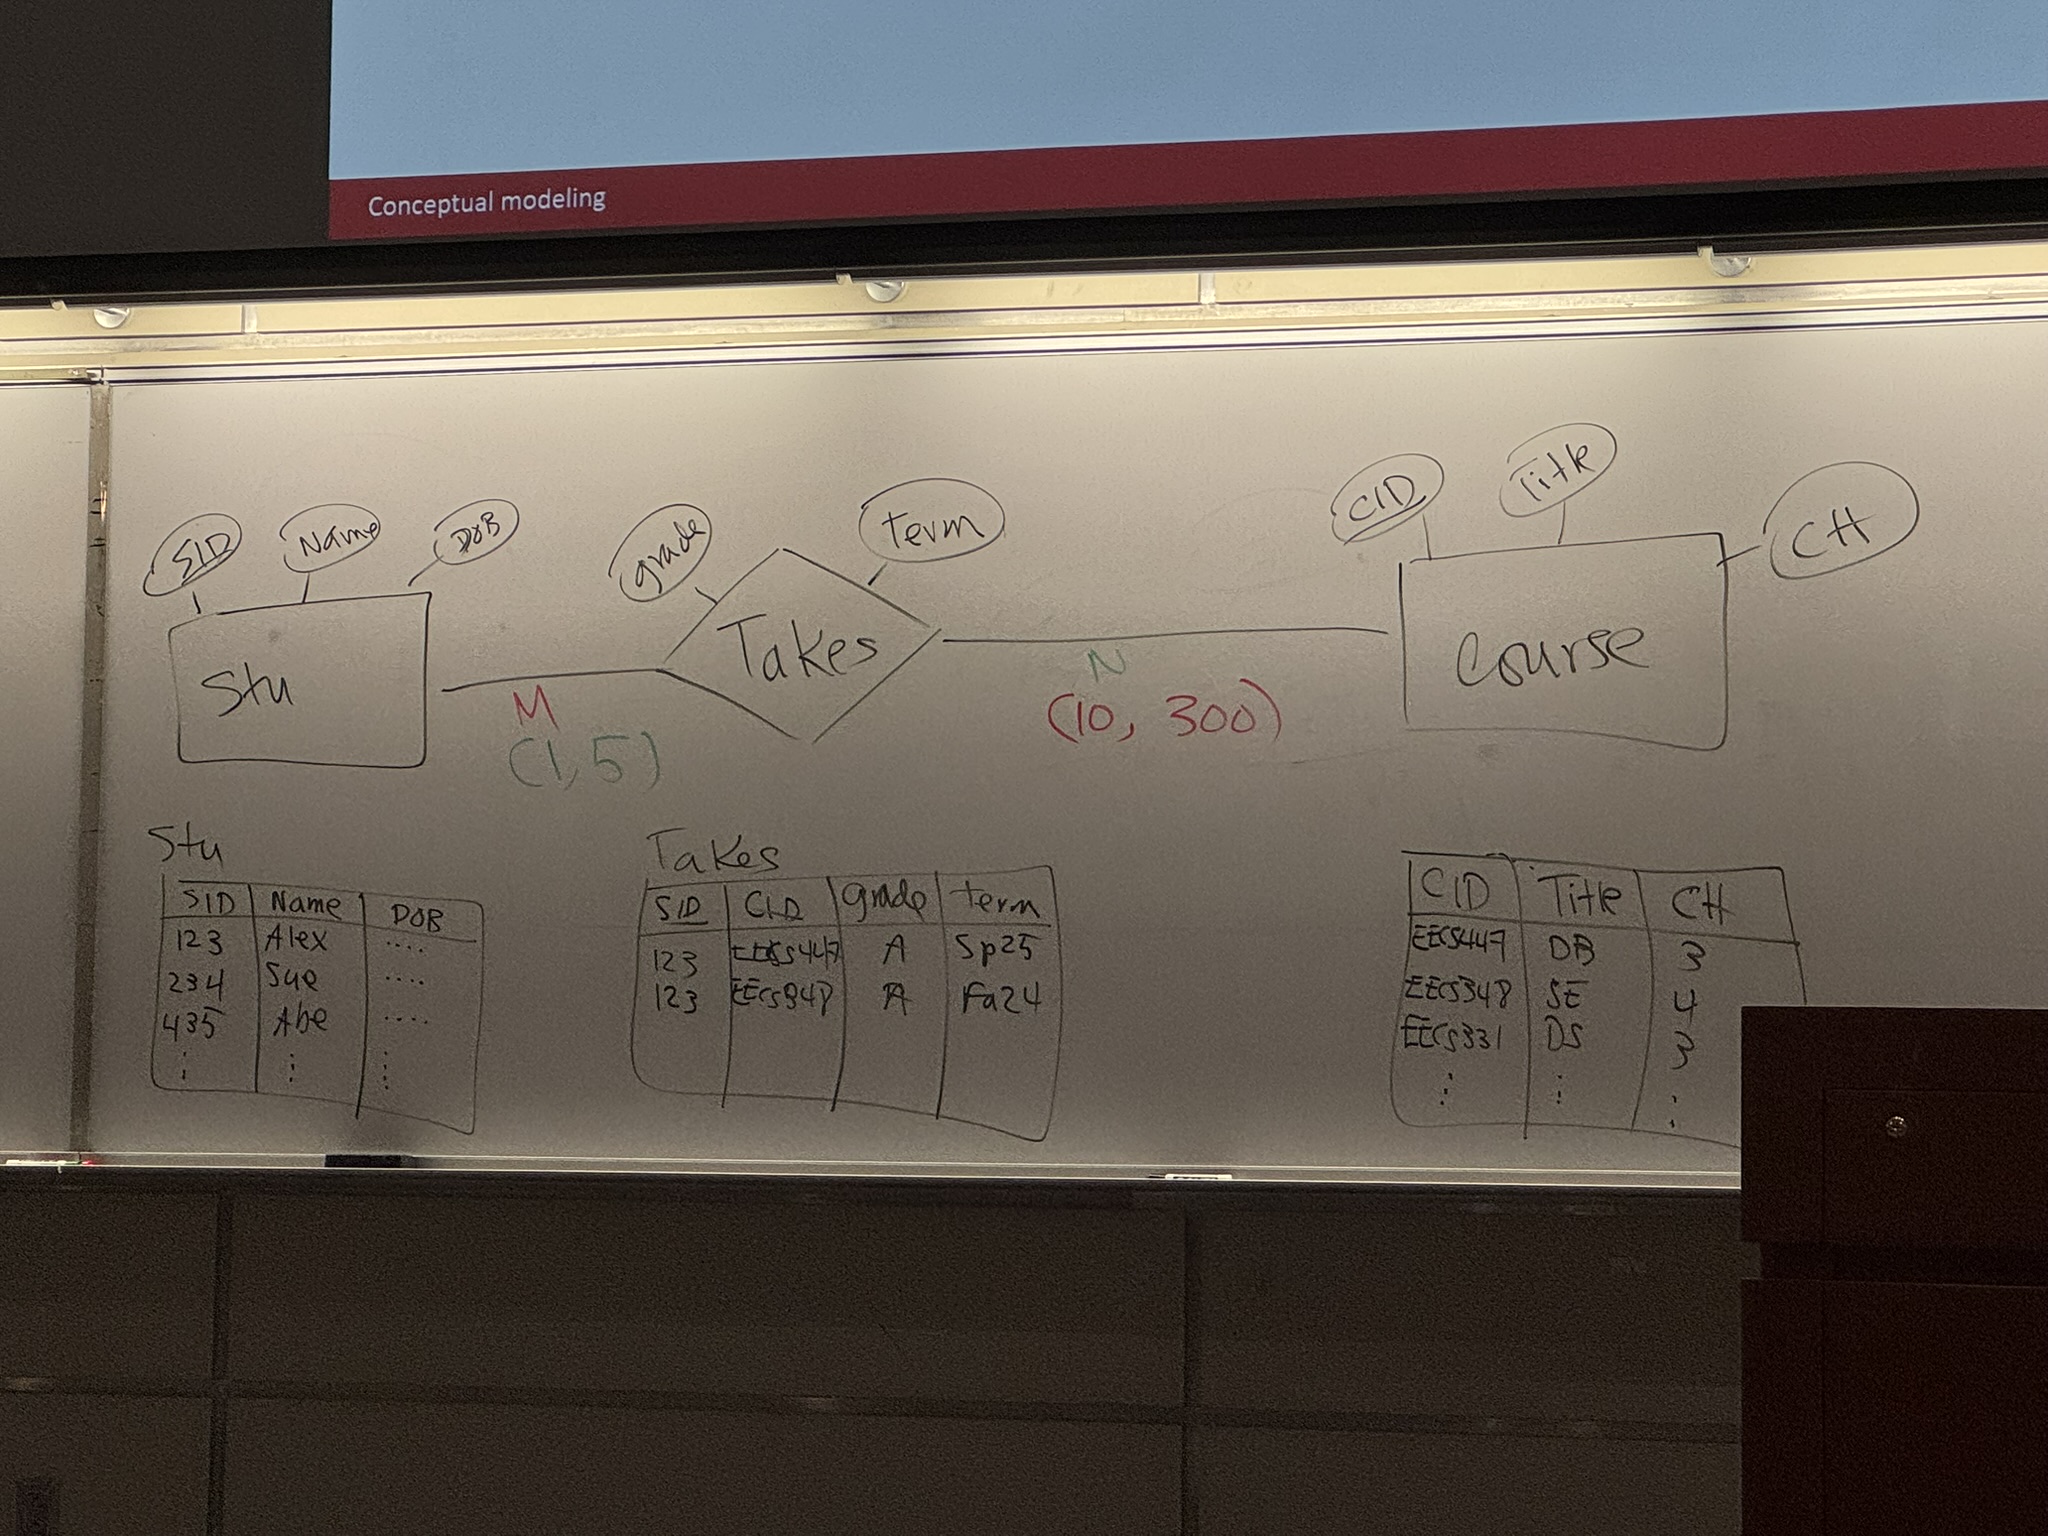 Conceptual modeling
SID Name DOB
grade term
CID Title CH
Stu
M
(1, 5)
Takes
N
(10, 300)
Course
Stu
SID Name DOB
123 Alex ....
234 Sue ....
435 Abe ....
⋮ ⋮ ⋮
Takes
SID CID grade term
123 EECS447 A Sp25
123 EECS348 A Fa24
CID Title CH
EECS447 DB 3
EECS348 SE 4
EECS331 DS 3
⋮ ⋮ ⋮